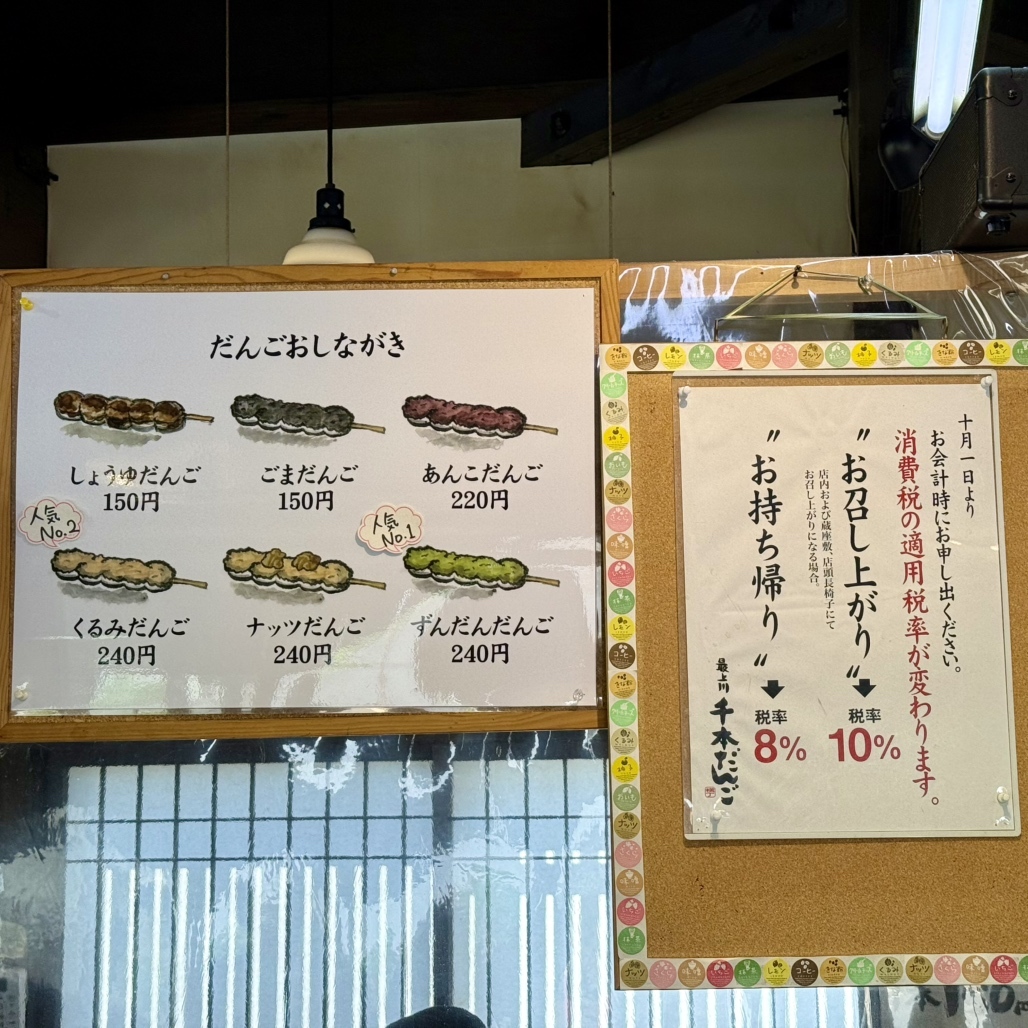 だんごおしながき
しょうゆだんご
150円
ごまだんご
150円
あんこだんご
220円
人気
No.2
くるみだんご
240円
ナッツだんご
240円
人気
No.1
ずんだんだんご
240円
十月一日より
お会計時にお申し出ください。
消費税の適用税率が変わります。
〝お召し上がり〟
店内および蔵座敷、店頭長椅子にて
お召し上がりになる場合。
税率
10%
〝お持ち帰り〟
税率
8%
最上川
千本だんご